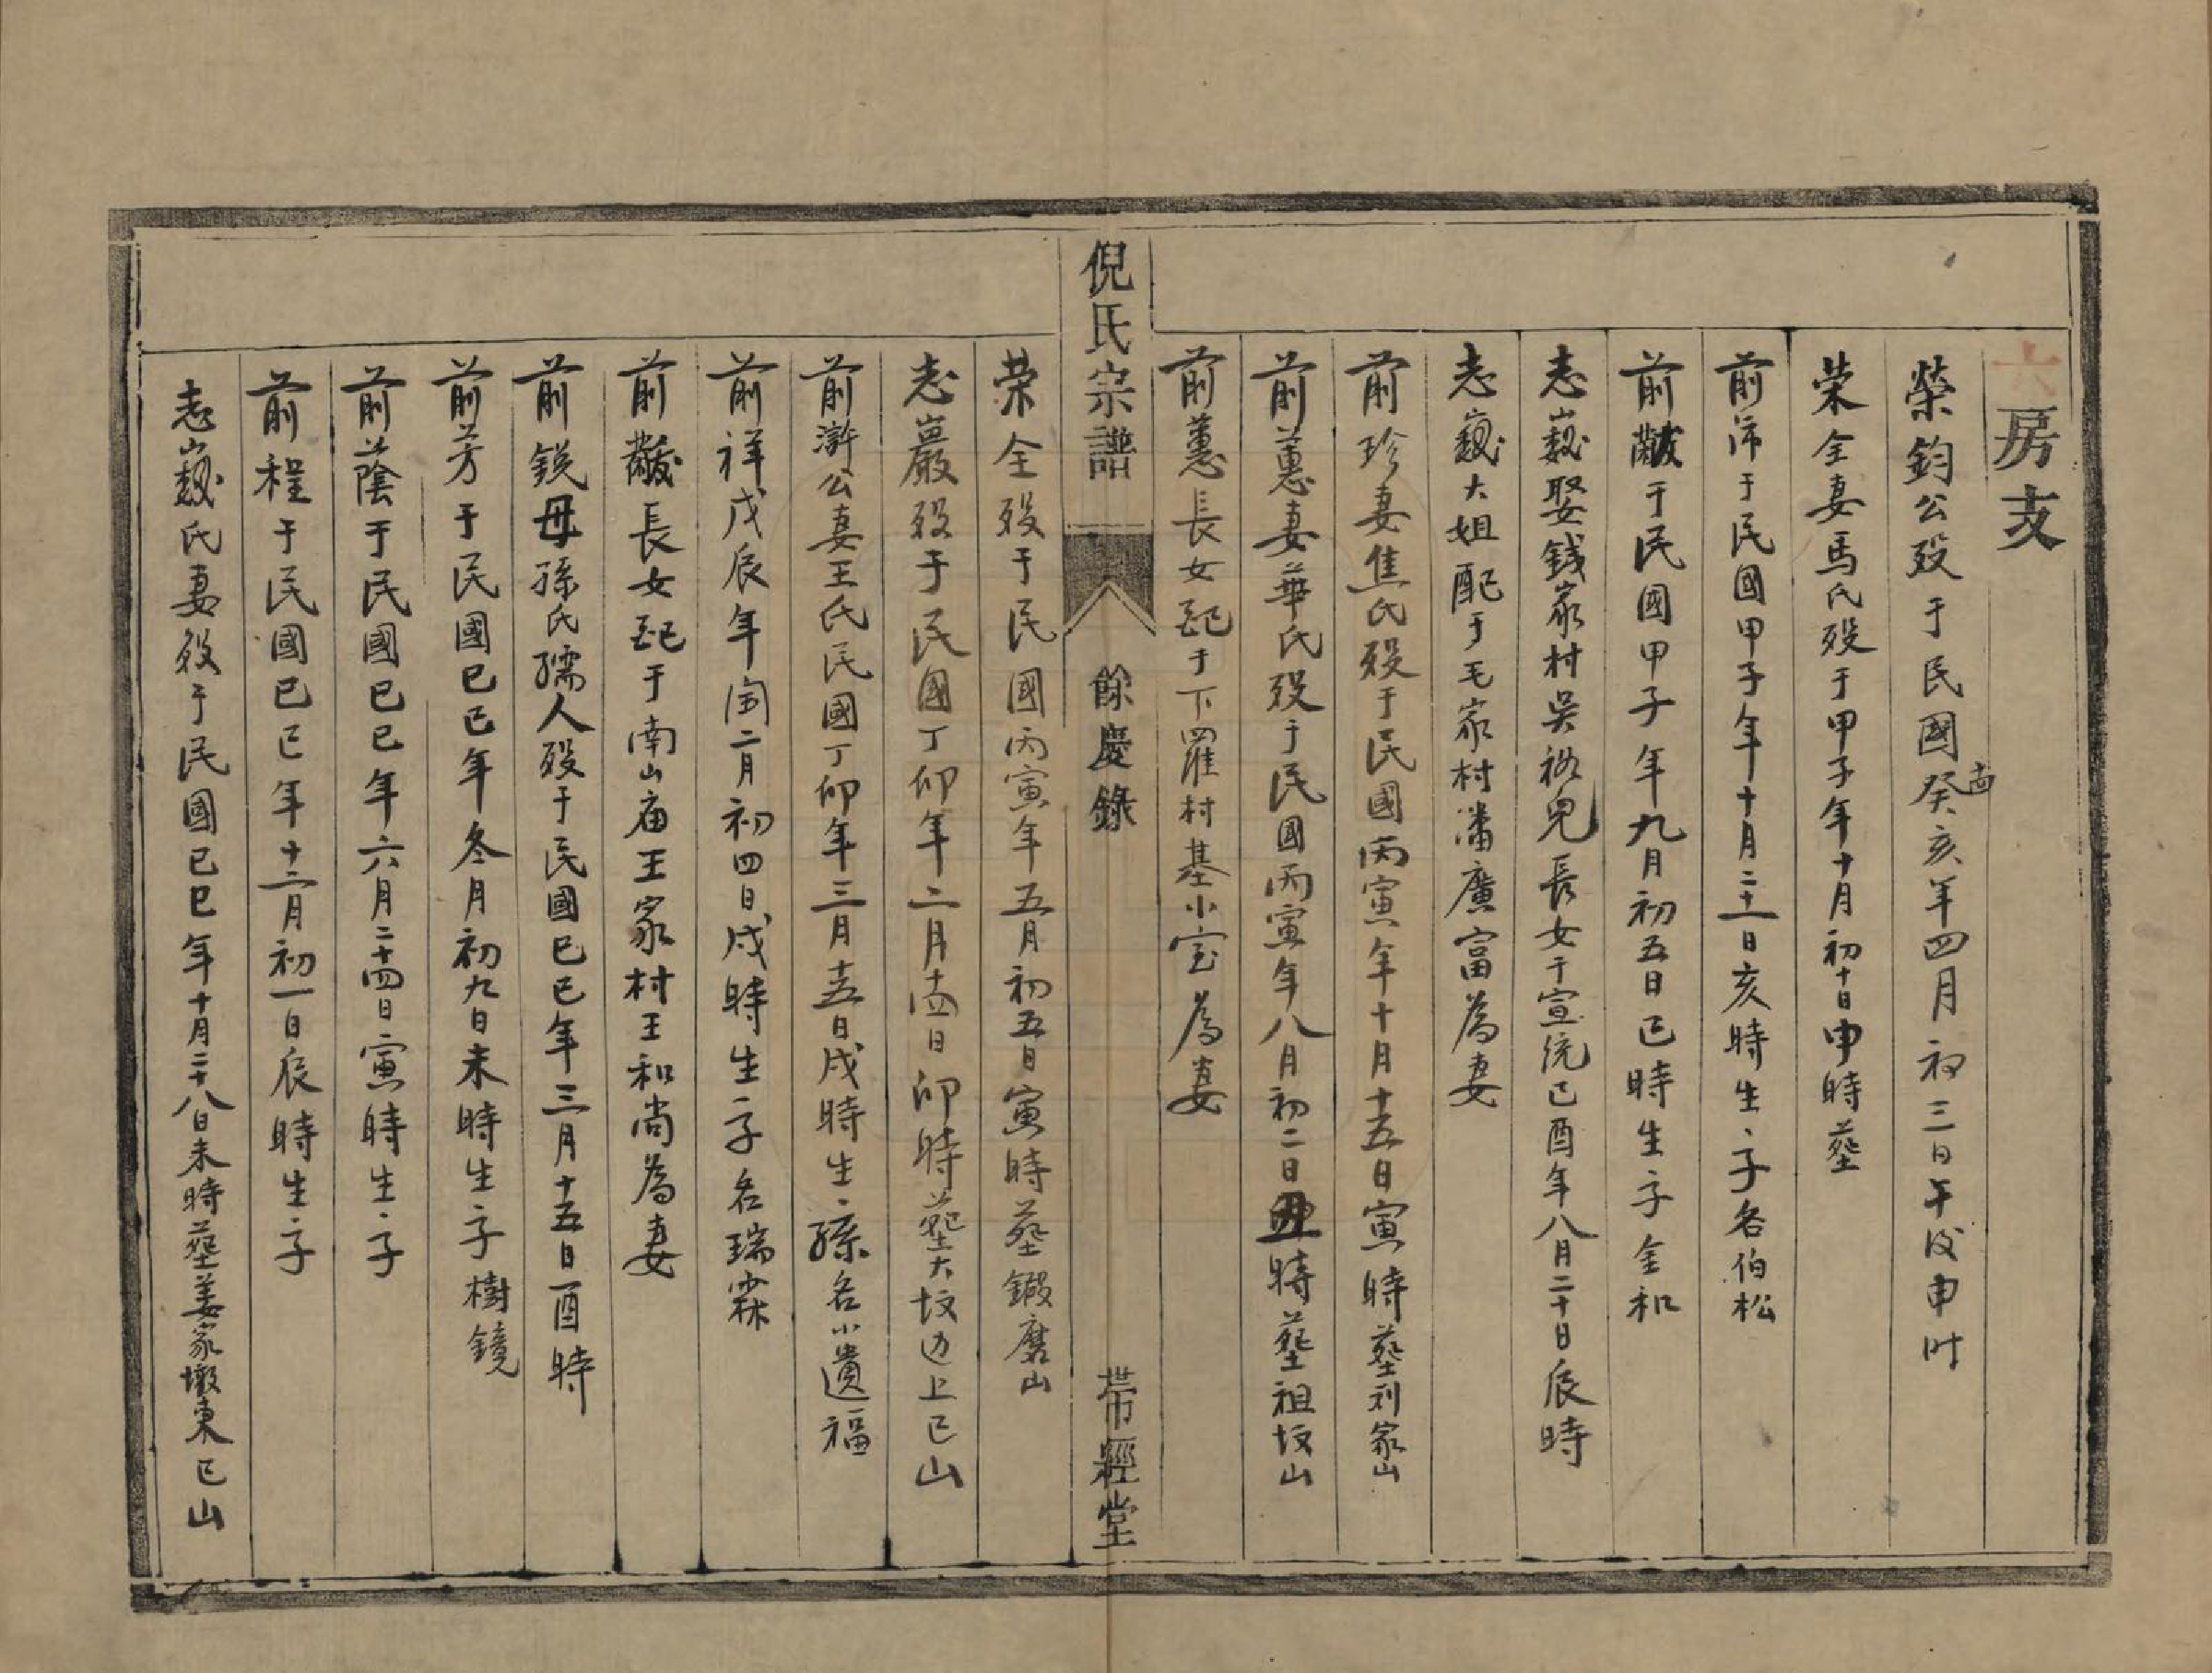 六房支
榮鈞公殁于民國癸亥年四月初三日午後申时
荣全妻馬氏殁于甲子年十月初十日申時塟
前沛于民國甲子年十月二十一日亥時生子名伯松
前黻于民國甲子年九月初五日巳時生子金和
志巍娶錢家村吴裕兒長女于宣統己酉年八月二十日辰時
志巍大姐配于毛家村潘廣富為妻
前珍妻焦氏殁于民國丙寅年十月十五日寅時塟刘家山
前蕙妻華氏殁于民國丙寅年八月初二日丑時塟祖坟山
前蕙長女配于下羅村基小宝為妻
倪氏宗譜 餘慶錄 帶經堂
荣全殁于民國丙寅年五月初五日寅時塟鍜磨山
志巖殁于民國丁卯年二月十四日卯時塟大坟边上己山
前滸公妻王氏民國丁卯年三月十五日戌時生孫名小遺福
前祥戊辰年闰二月初四日戌時生子名瑞霖
前黻長女配于南山庙王家村王和尚為妻
前銳母孫氏孺人殁于民國己巳年三月十五日酉時
前芳于民國己巳年冬月初九日未時生子樹鏡
前蔭于民國己巳年六月二十四日寅時生子
前程于民國己巳年十二月初一日辰時生子
志巍氏妻殁于民國己巳年十月二十八日未時塟姜家墩東己山